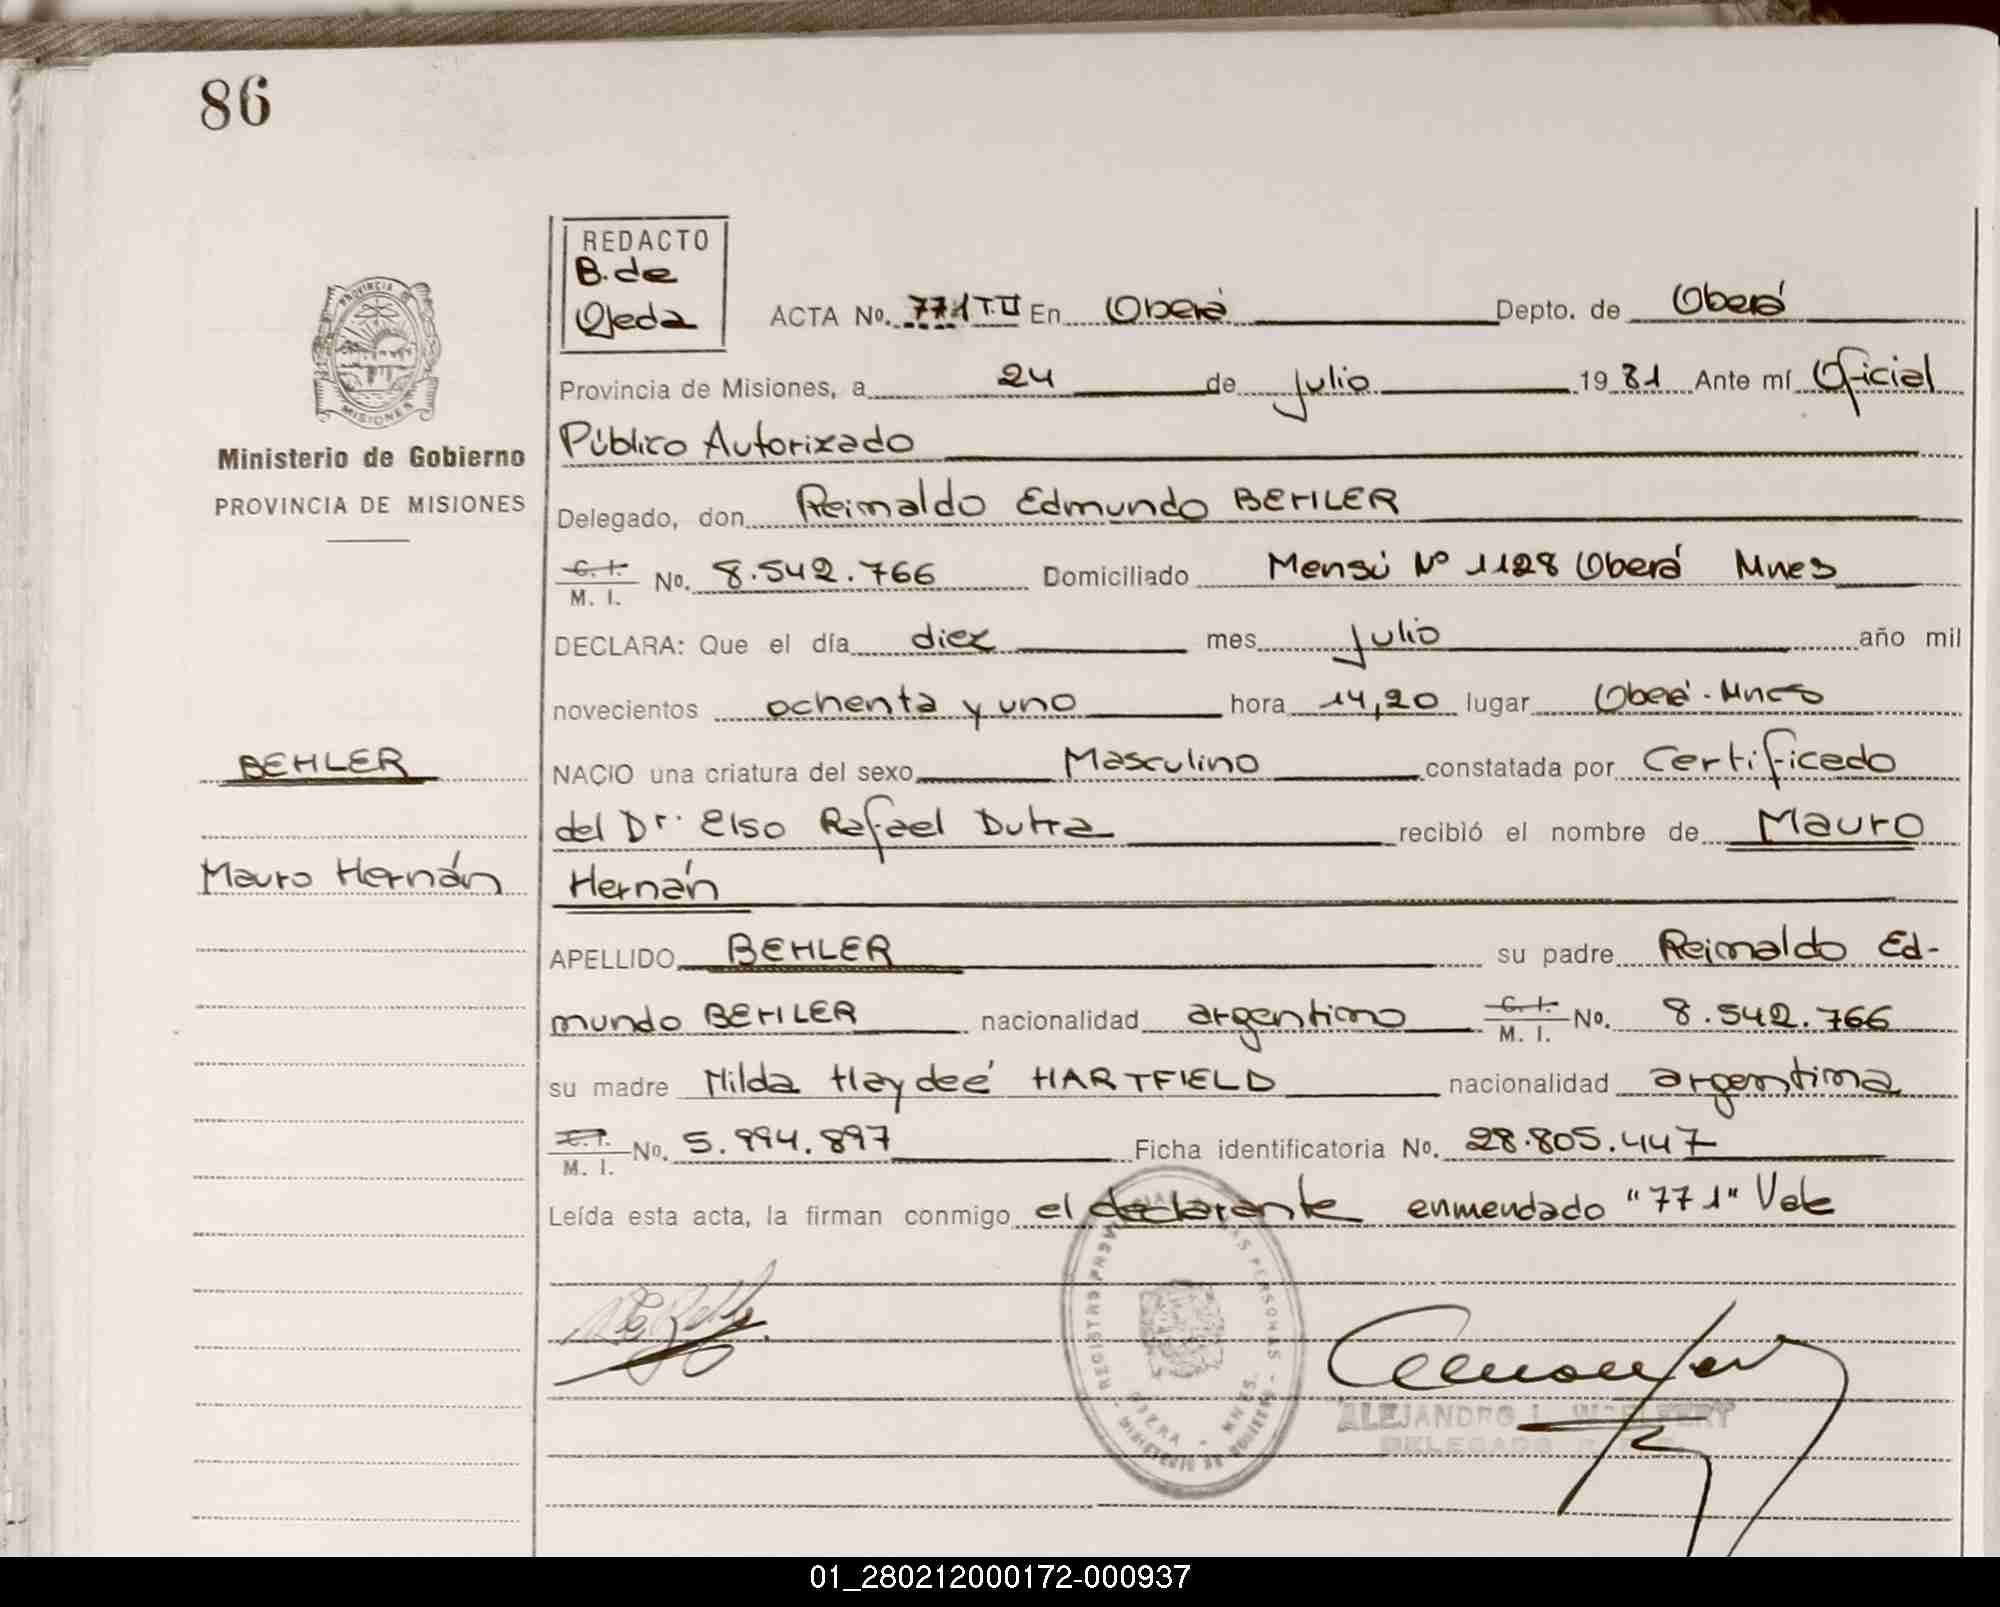 86
REDACTO
B. de
Ojeda
ACTA No. 771 T.II En Oberá Depto. de Oberá
Provincia de Misiones, a 24 de julio 1981 Ante mí Oficial
Público Autorizado
Delegado, don Reinaldo Edmundo BEHLER
C. I. M. I. No. 8.542.766 Domiciliado Mensú Nº 1128 Oberá Mnes
DECLARA: Que el día diez mes julio año mil
novecientos ochenta y uno hora 14,20 lugar Oberá - Mnes
NACIO una criatura del sexo Masculino constatada por Certificado
del Dr. Elso Rafael Dutra recibió el nombre de Mauro
Hernán
APELLIDO BEHLER su padre Reinaldo Ed-
mundo BEHLER nacionalidad argentino C. I. M. I. No. 8.542.766
su madre Nilda Haydeé HARTFIELD nacionalidad argentina
C. I. M. I. No. 5.994.897 Ficha identificatoria No. 28.805.447
Leída esta acta, la firman conmigo el declarante enmendado "771" Vale
PROVINCIA DE
MISIONES
Ministerio de Gobierno
PROVINCIA DE MISIONES
BEHLER
Mauro Hernán
REGISTRO PROVINCIAL PERSONAS
OBERA - MNES.
MINISTERIO DE GOBIERNO
ALEJANDRO L. WOELFERT
DELEGADO
01_280212000172-000937